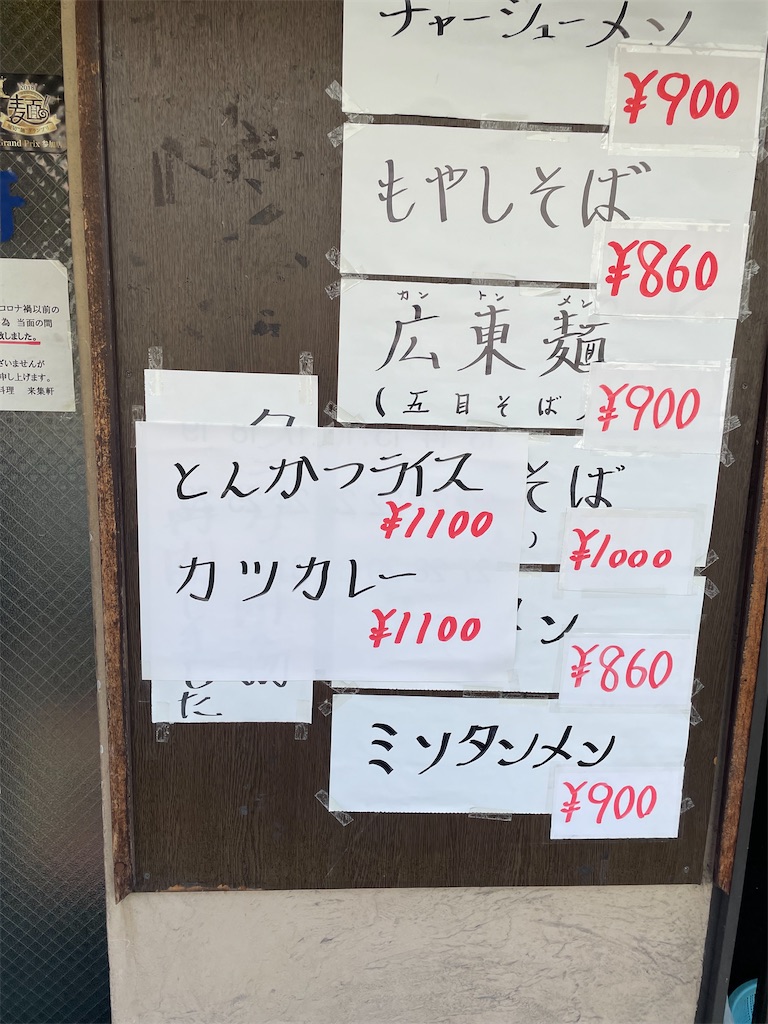 チャーシューメン
¥900
もやしそば
¥860
カントンメン
広東麺
(五目そば)
¥900
そば
¥1000
メン
¥860
ミソタンメン
¥900
とんかつライス
¥1100
カツカレー
¥1100
た
麺
Grand Prix 参加店
コロナ禍以前の
為 当面の間
致しました。
ざいませんが
申し上げます。
料理 来集軒